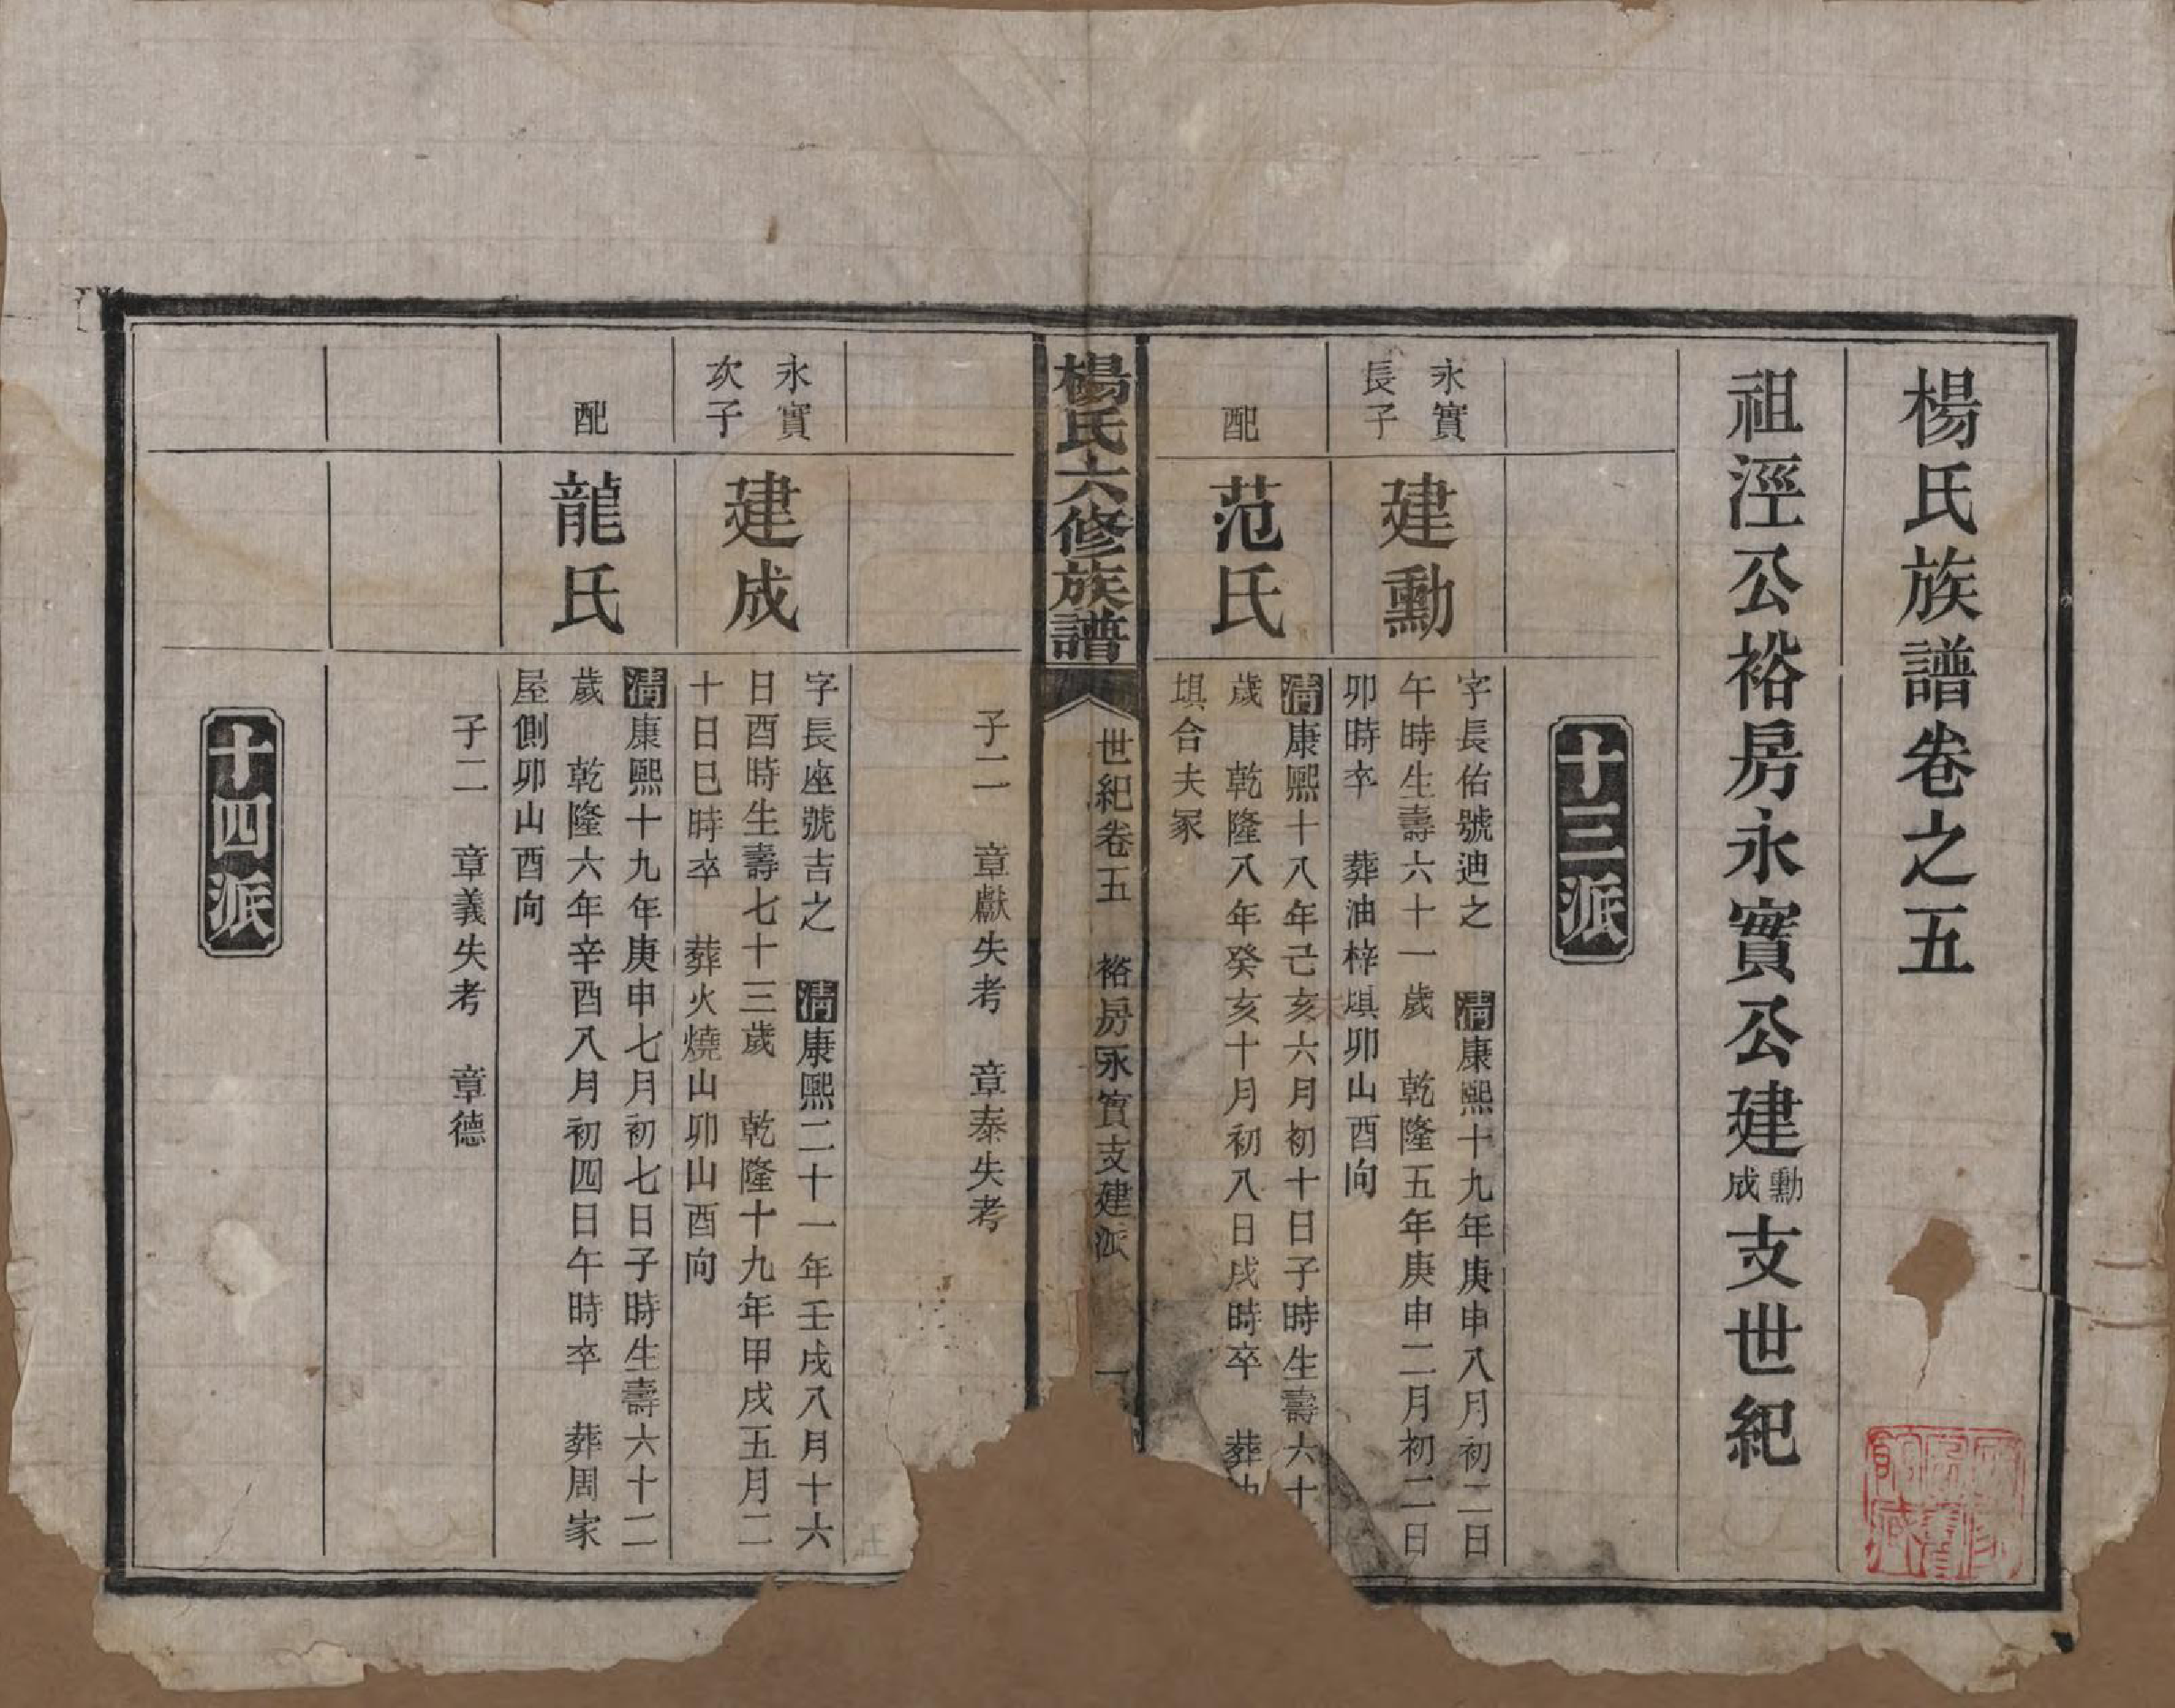 楊氏族譜卷之五
祖涇公裕房永實公建勳成支世紀
十三派
永實
長子
建勳
字長佑號迪之　清康熙十九年庚申八月初二日
午時生壽六十一歲　乾隆五年庚申二月初二日
卯時卒　葬油梓塡卯山酉向
配
范氏
清康熙十八年己亥六月初十日子時生壽六十
歲　乾隆八年癸亥十月初八日戌時卒　葬
塡合夫冢
楊氏六修族譜
世紀卷五　裕房永實支建派　一
子二　章獻失考　章泰失考
永實
次子
建成
字長座號吉之　清康熙二十一年壬戌八月十六
日酉時生壽七十三歲　乾隆十九年甲戌五月二
十日巳時卒　葬火燒山卯山酉向
配
龍氏
清康熙十九年庚申七月初七日子時生壽六十二
歲　乾隆六年辛酉八月初四日午時卒　葬周家
屋側卯山酉向
子二　章義失考　章德
十四派